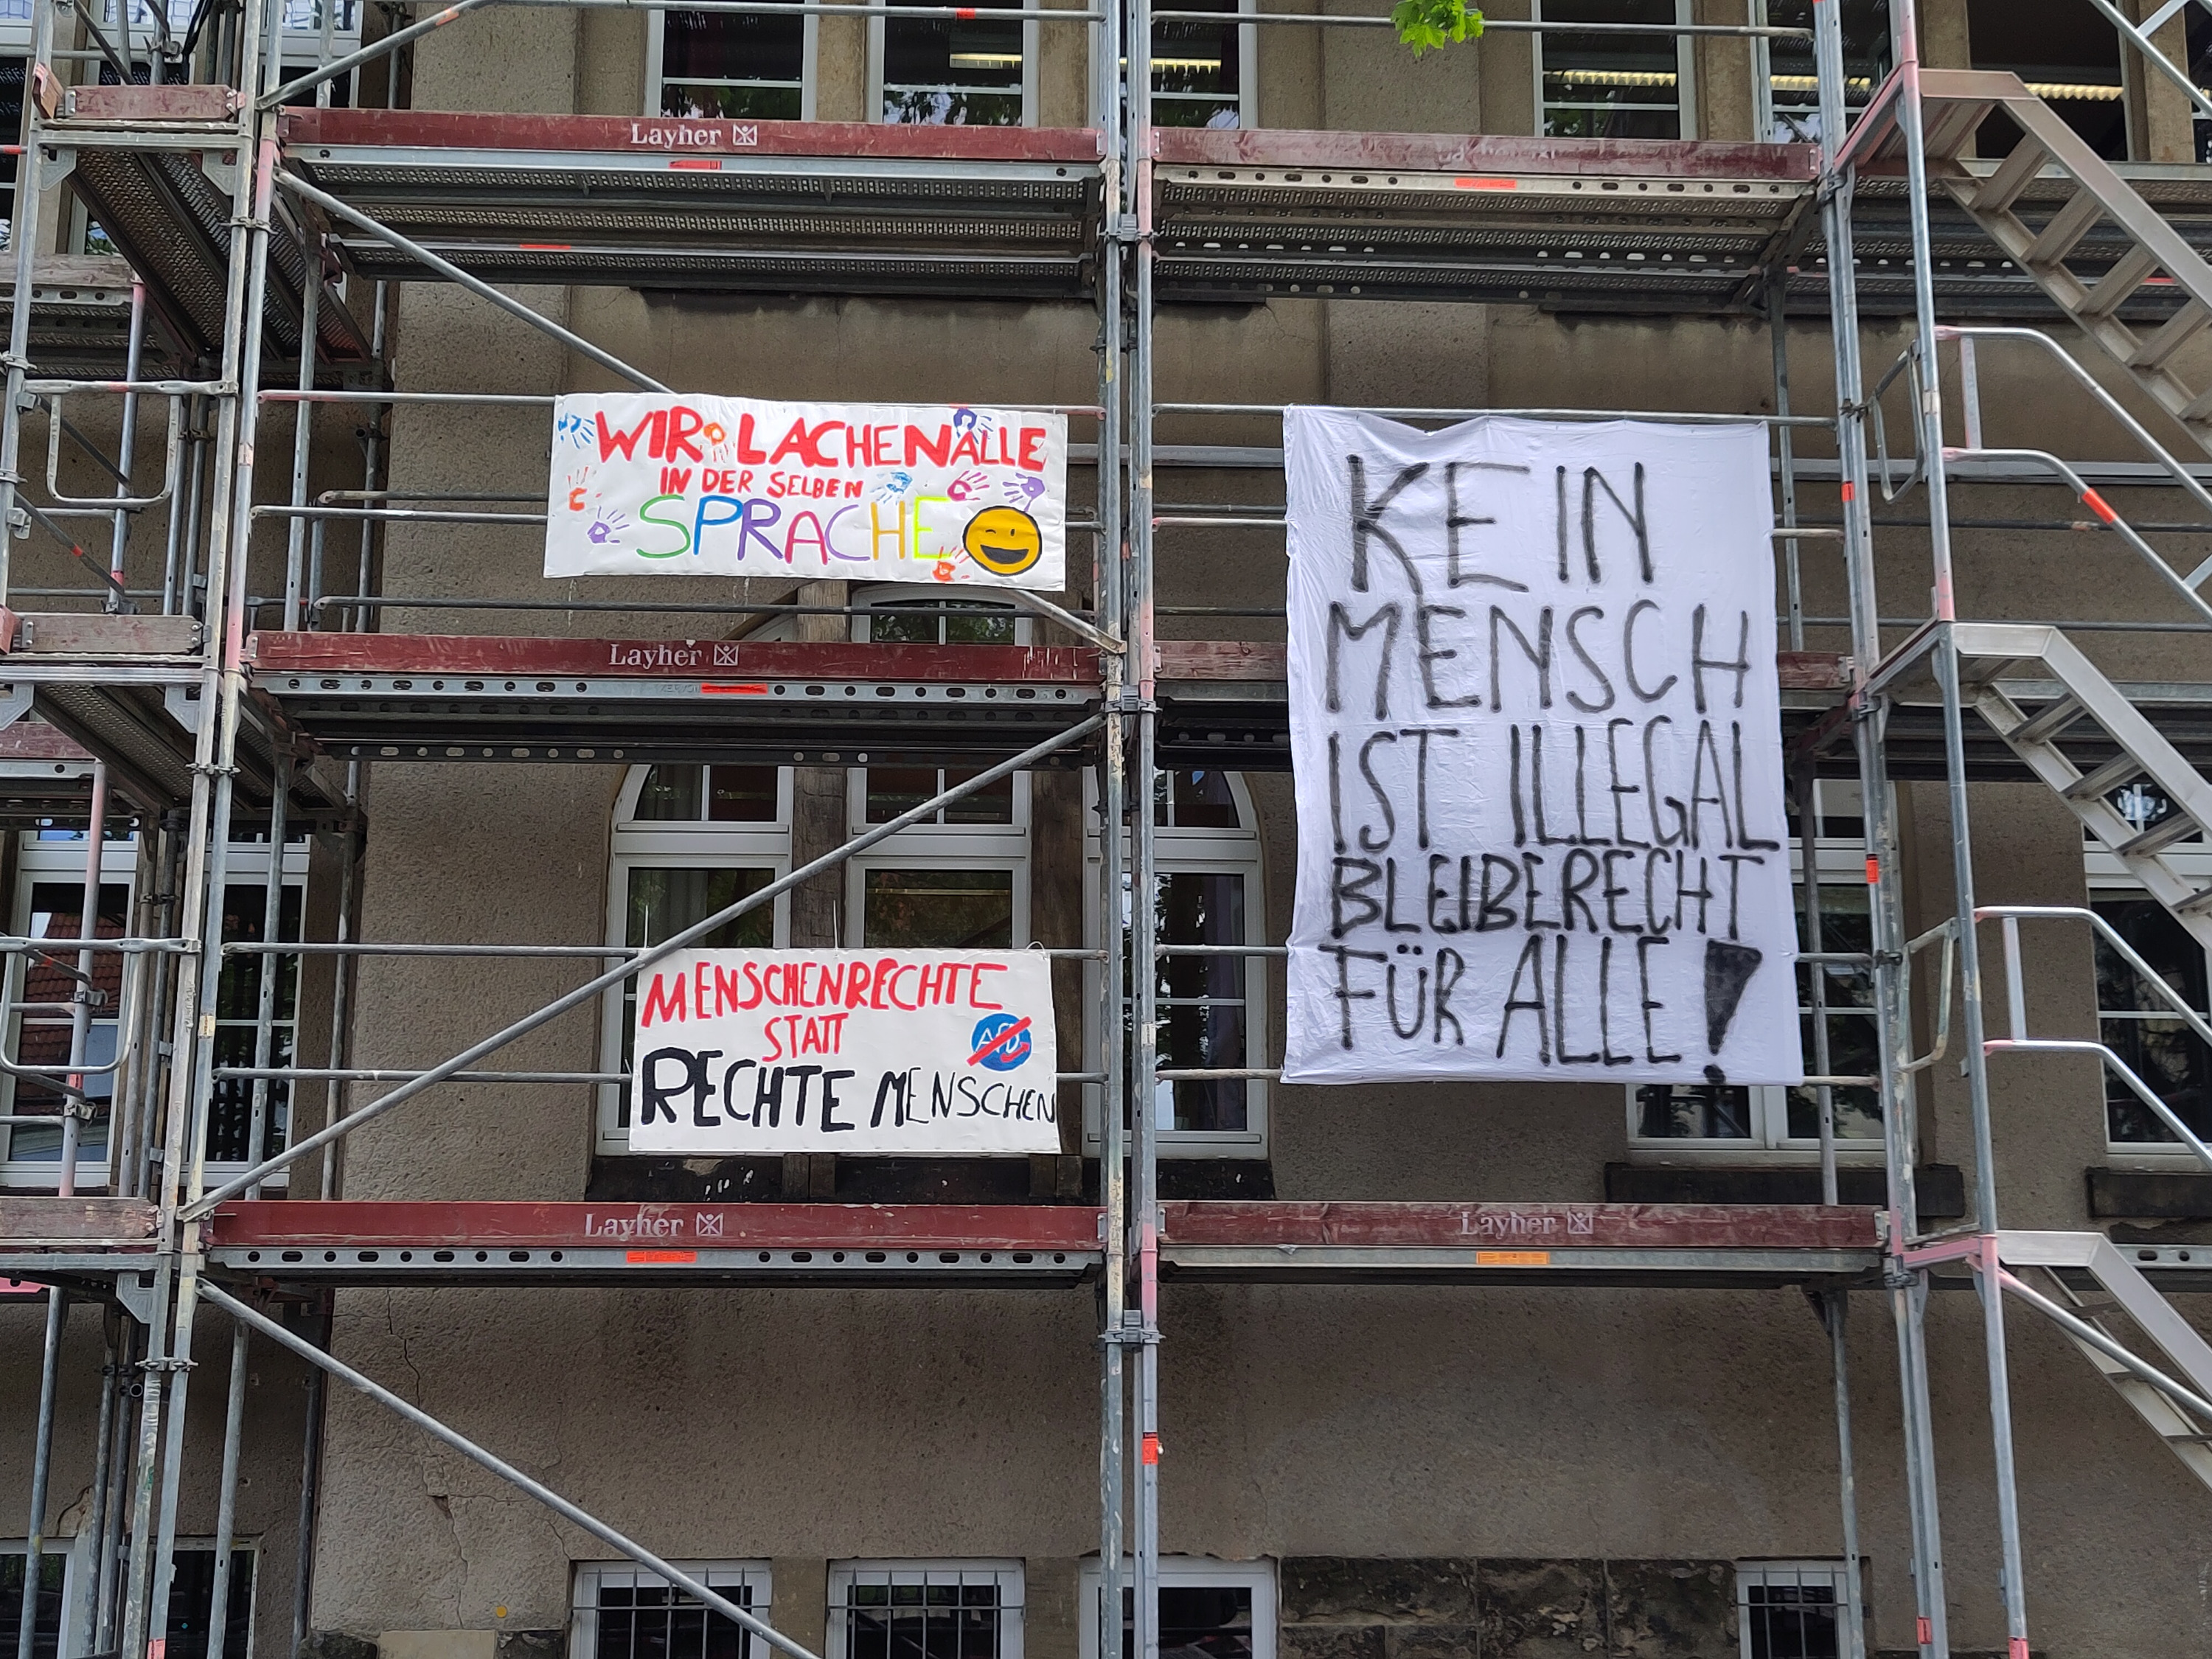 Layher
WIR LACHEN ALLE
IN DER SELBEN
SPRACHE
Layher
KEIN
MENSCH
IST ILLEGAL
BLEIBERECHT
FÜR ALLE!
MENSCHENRECHTE
STATT
AfD
RECHTE MENSCHEN
Layher
Layher